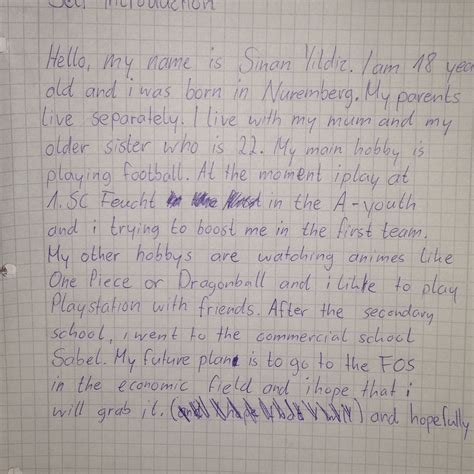 Self Introduction
Hello, my name is Sinan Yildiz. I am 18 year
old and i was born in Nuremberg. My parents
live separately. I live with my mum and my
older sister who is 22. My main hobby is
playing football. At the moment iplay at
1. SC Feucht in the A-youth
and i trying to boost me in the first team.
My other hobbys are watching animes like
One Piece or Dragonball and i like to play
Playstation with friends. After the secondary
school, i went to the commercial school
Sabel. My future plan is to go to the FOS
in the economic field and ihope that i
will grab it. ( ) and hopefully